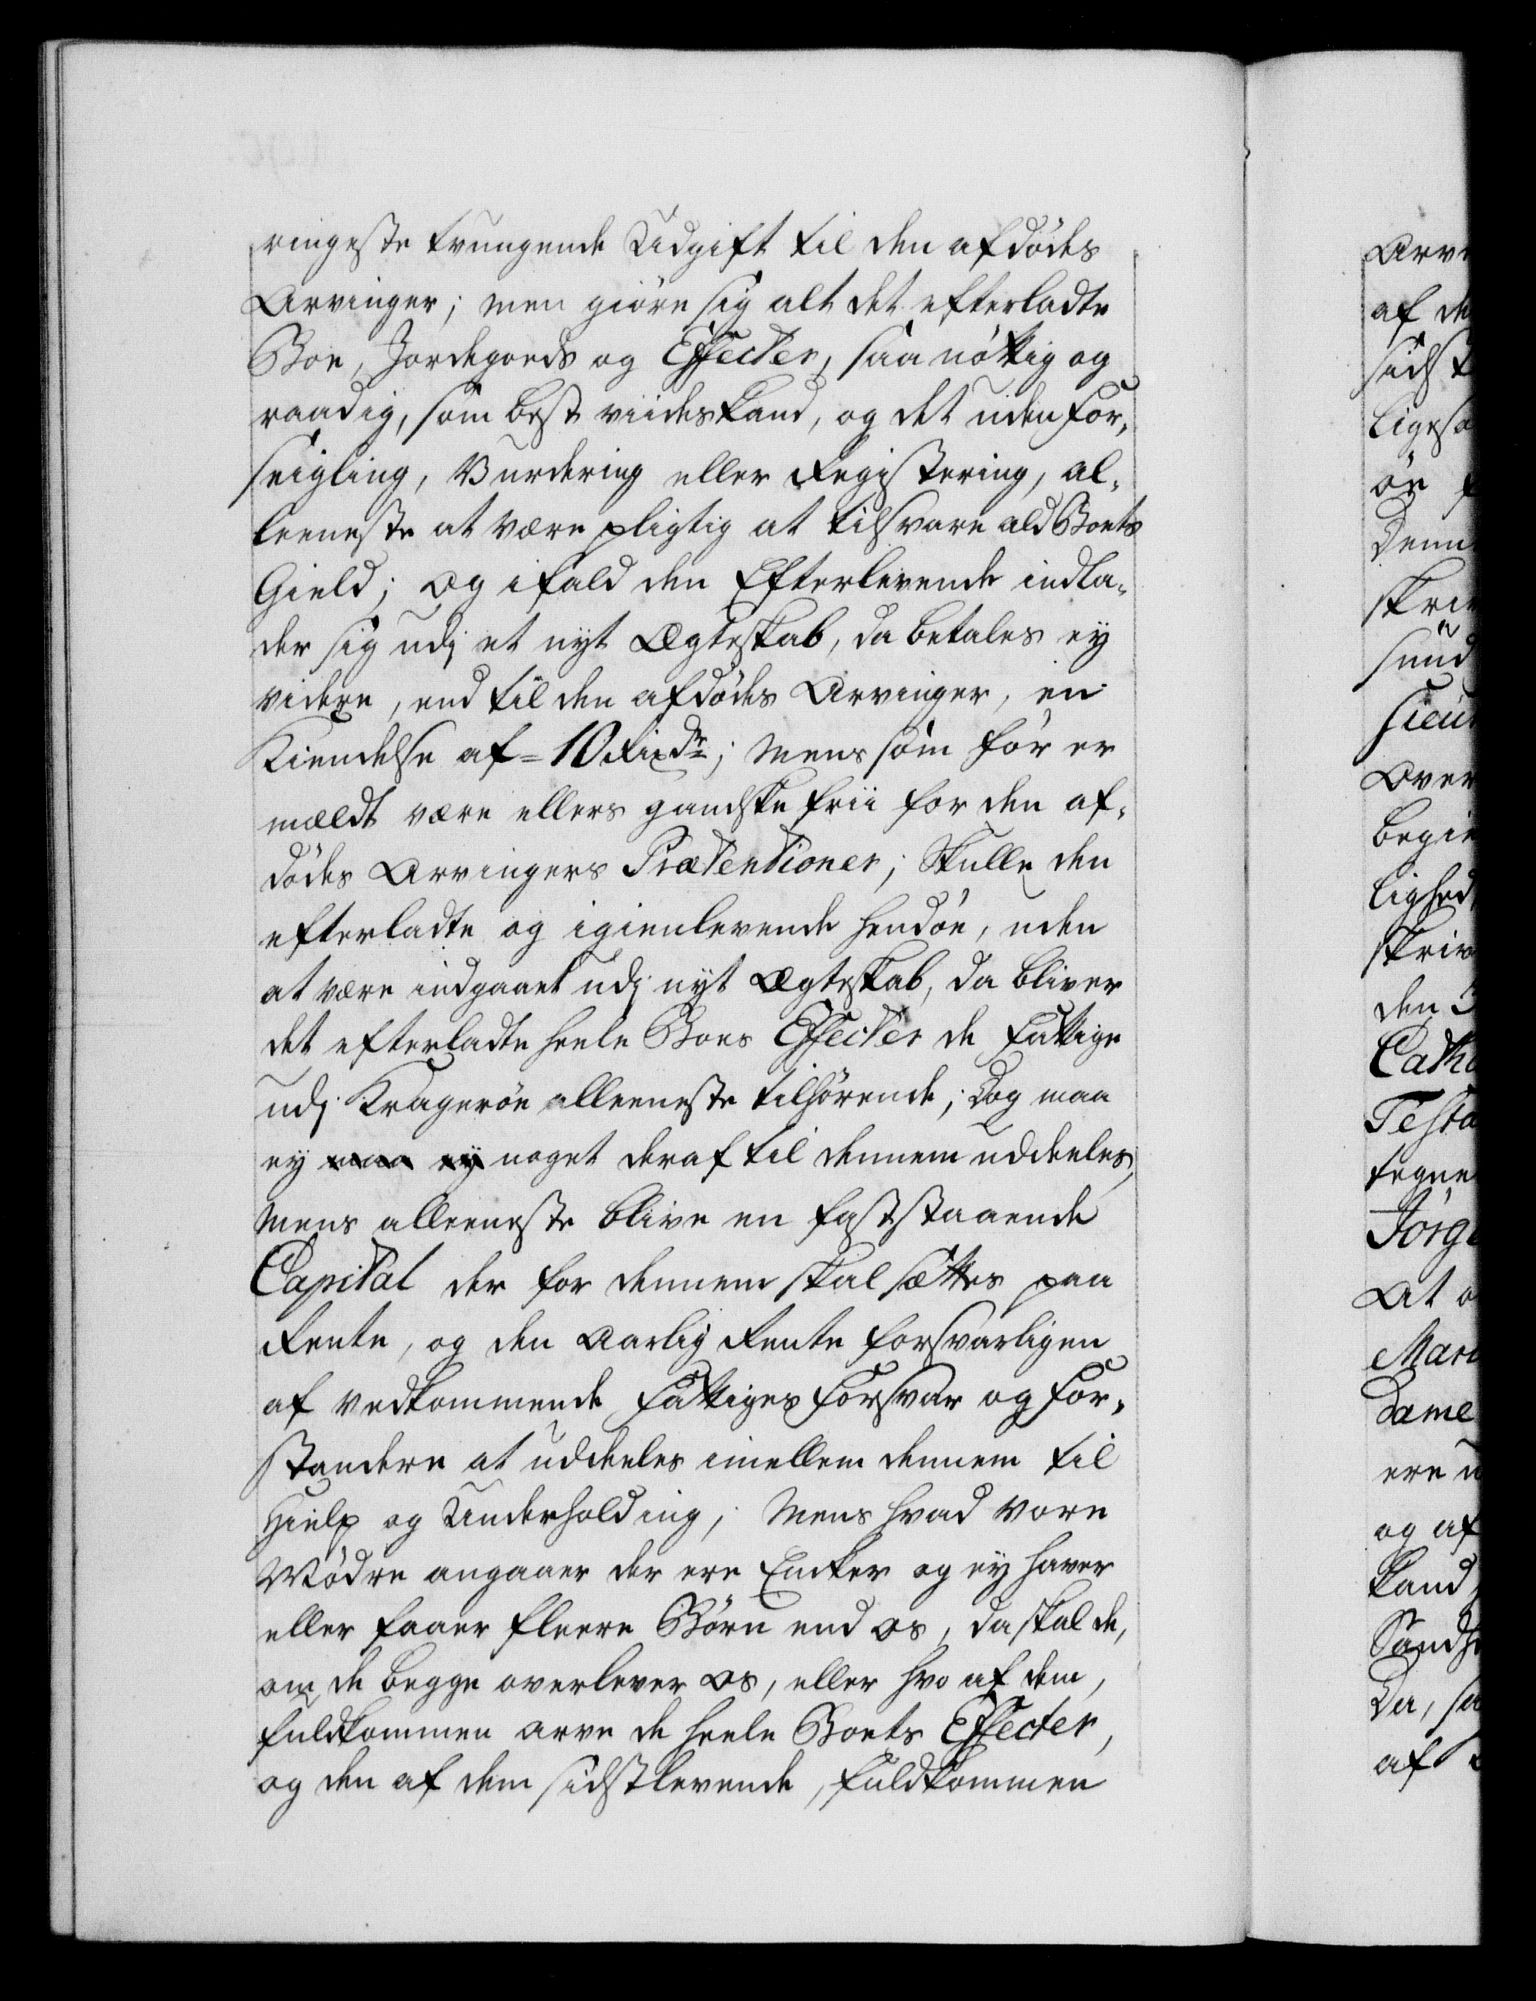 ringeste tvungende Udgift til den afdødes
Arvinger; men giøre sig alt det efterladte
Boe, Jordegods og Effecter, saa nøttig og
raadig, som best viides kand, og det uden For-
seigling, Vurdering eller Registering, al-
leeneste at være pligtig at tilsvare ald Boets
Gield; Og ifald den Efterlevende indla-
der sig udj et nyt Ægteskab, da betales ey
videre, end til den afdødes Arvinger, en
Kiendelse af = 10 Rixdr; Mens som før er
meldt være ellers gandske frii for den af-
dødes Arvingers Prætentioner; Skulle den
efterladte og igienlevende hendøe, uden
at være indgaaet udj nyt Ægteskab, da bliver
det efterladte heele Boes Effecter de Fattige
udj Kragerøe alleeneste tilhørende; Dog maa
ey maa ey noget deraf til dennem uddeeles,
Mens alleeneste blive en faststaaende
Capital der for dennem skal sættes paa
Rente, og den Aarlig Rente forsvarligen
af vedkommende Fattiges Forsvar og For-
standere at uddeeles imellem dennem til
Hielp og Underholding; Mens hvad vore
Mødre angaaer der ere Encker og ey haver
eller faaer fleere Børn end os, da skal de,
om de begge overlever os, eller hvo af dem,
fuldkommen arve de heele Boets Effecter,
og den af dem sidstlevende, fuldkommen